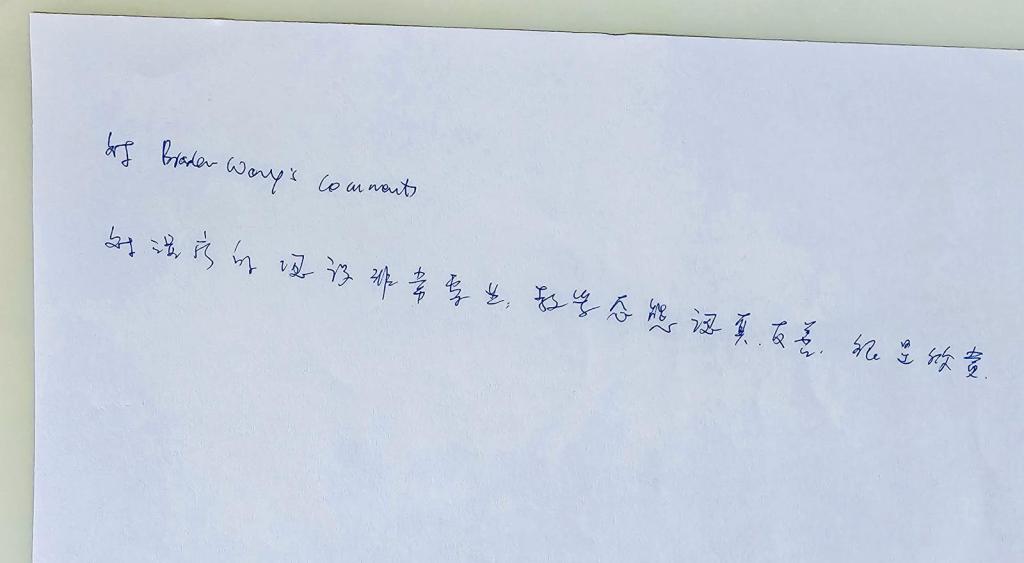 对 Braden Wang's comments
对温房的理设非常专业,教学态度认真.友善.很是欣赏.